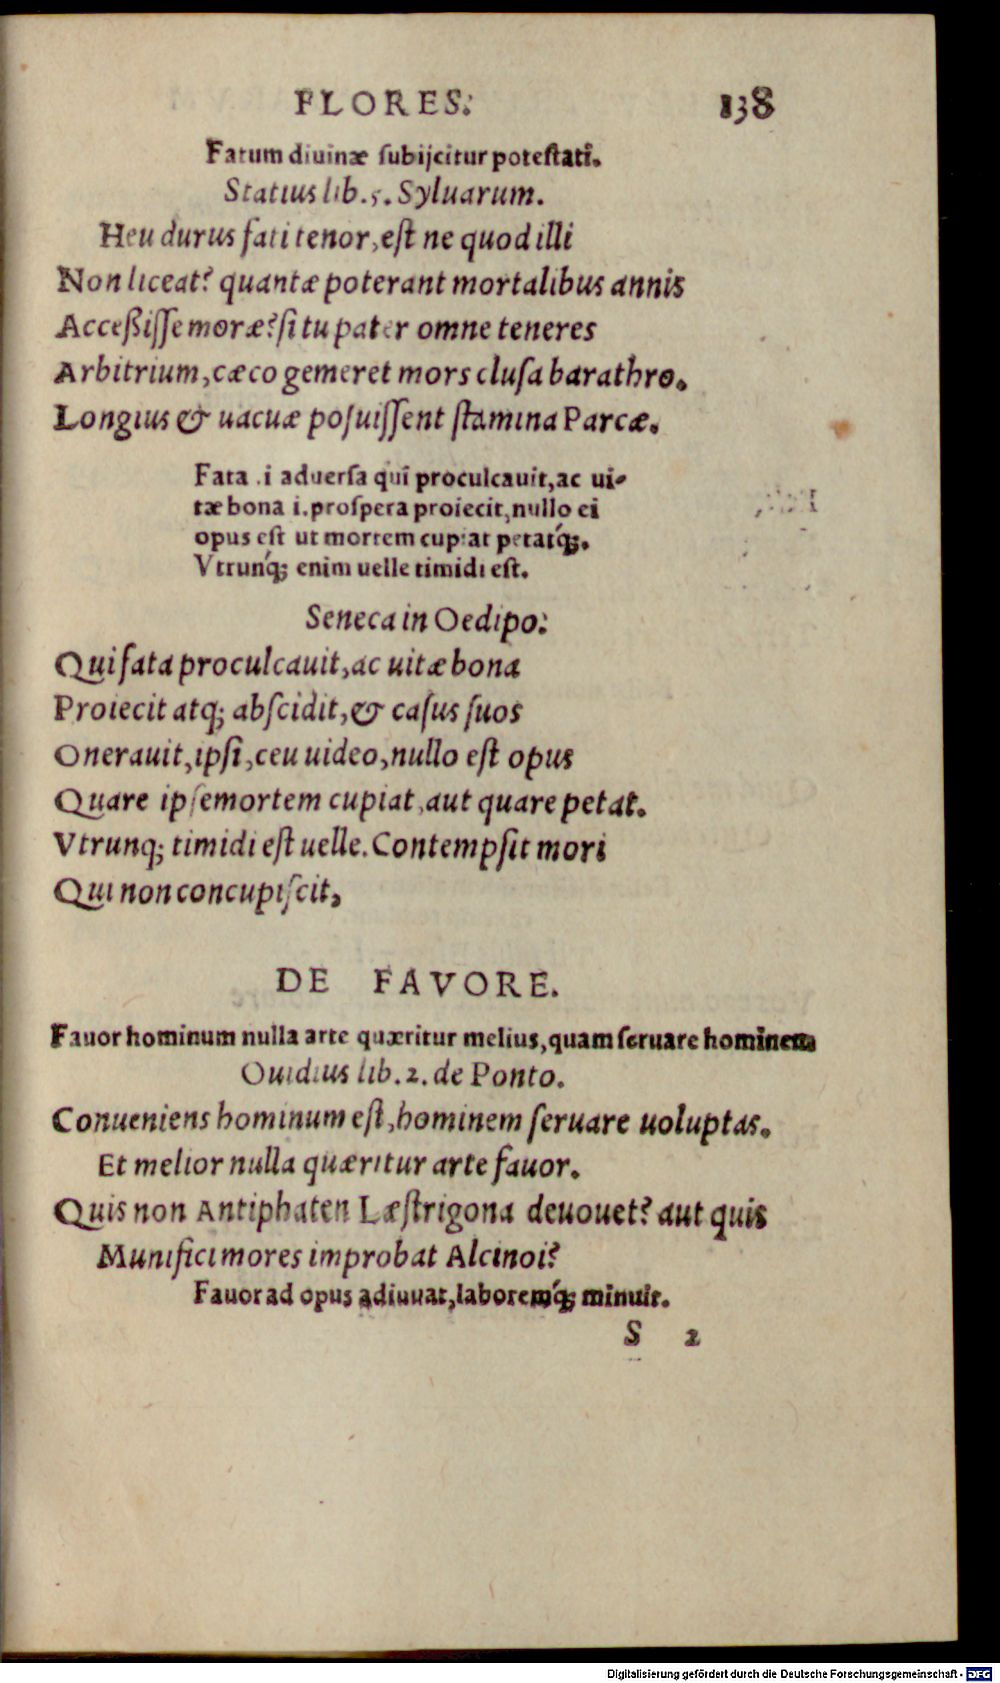 FLORES. 138
Fatum diuinæ subijcitur potestati.
Statius lib. 5. Syluarum.
Heu durus fati tenor, est ne quod illi
Non liceat? quantæ poterant mortalibus annis
Acceßisse moræ? si tu pater omne teneres
Arbitrium, cæco gemeret mors clusa barathro.
Longius & uacuæ posuissent stamina Parcæ.
Fata .i aduersa qui proculcauit, ac ui-
tæ bona i. prospera proiecit, nullo ei
opus est ut mortem cupiat petatq́;.
Vtrunq́; enim uelle timidi est.
Seneca in Oedipo:
Qui fata proculcauit, ac uitæ bona
Proiecit atq; abscidit, & casus suos
Onerauit, ipsi, ceu uideo, nullo est opus
Quare ipse mortem cupiat, aut quare petat.
Vtrunq; timidi est uelle. Contempsit mori
Qui non concupiscit,
DE FAVORE.
Fauor hominum nulla arte quæritur melius, quam seruare hominem
Ouidius lib. 2. de Ponto.
Conueniens hominum est, hominem seruare uoluptas.
Et melior nulla quæritur arte fauor.
Quis non Antiphaten Læstrigona deuouet? aut quis
Munifici mores improbat Alcinoi?
Fauor ad opus adiuuat, laboremq́; minuit.
S 2
Digitalisierung gefördert durch die Deutsche Forschungsgemeinschaft - DFG